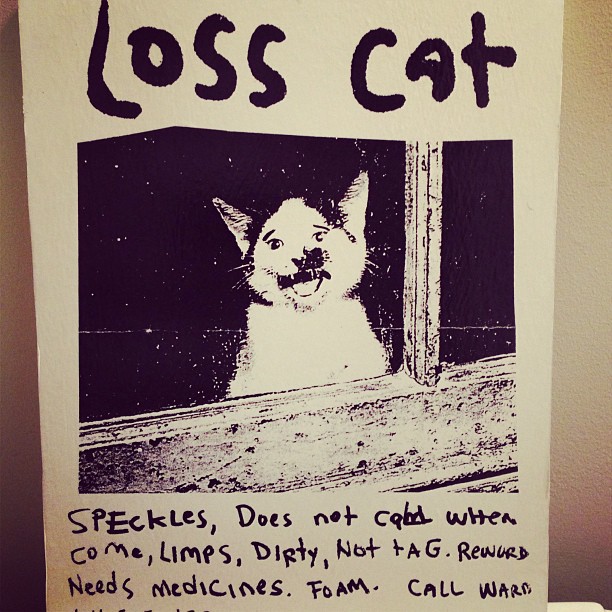 Loss cat
SPECKLES, Does not call when
come, Limps, Dirty, Not tAG. REWURD
Needs medicines. FOAM. CALL WARD